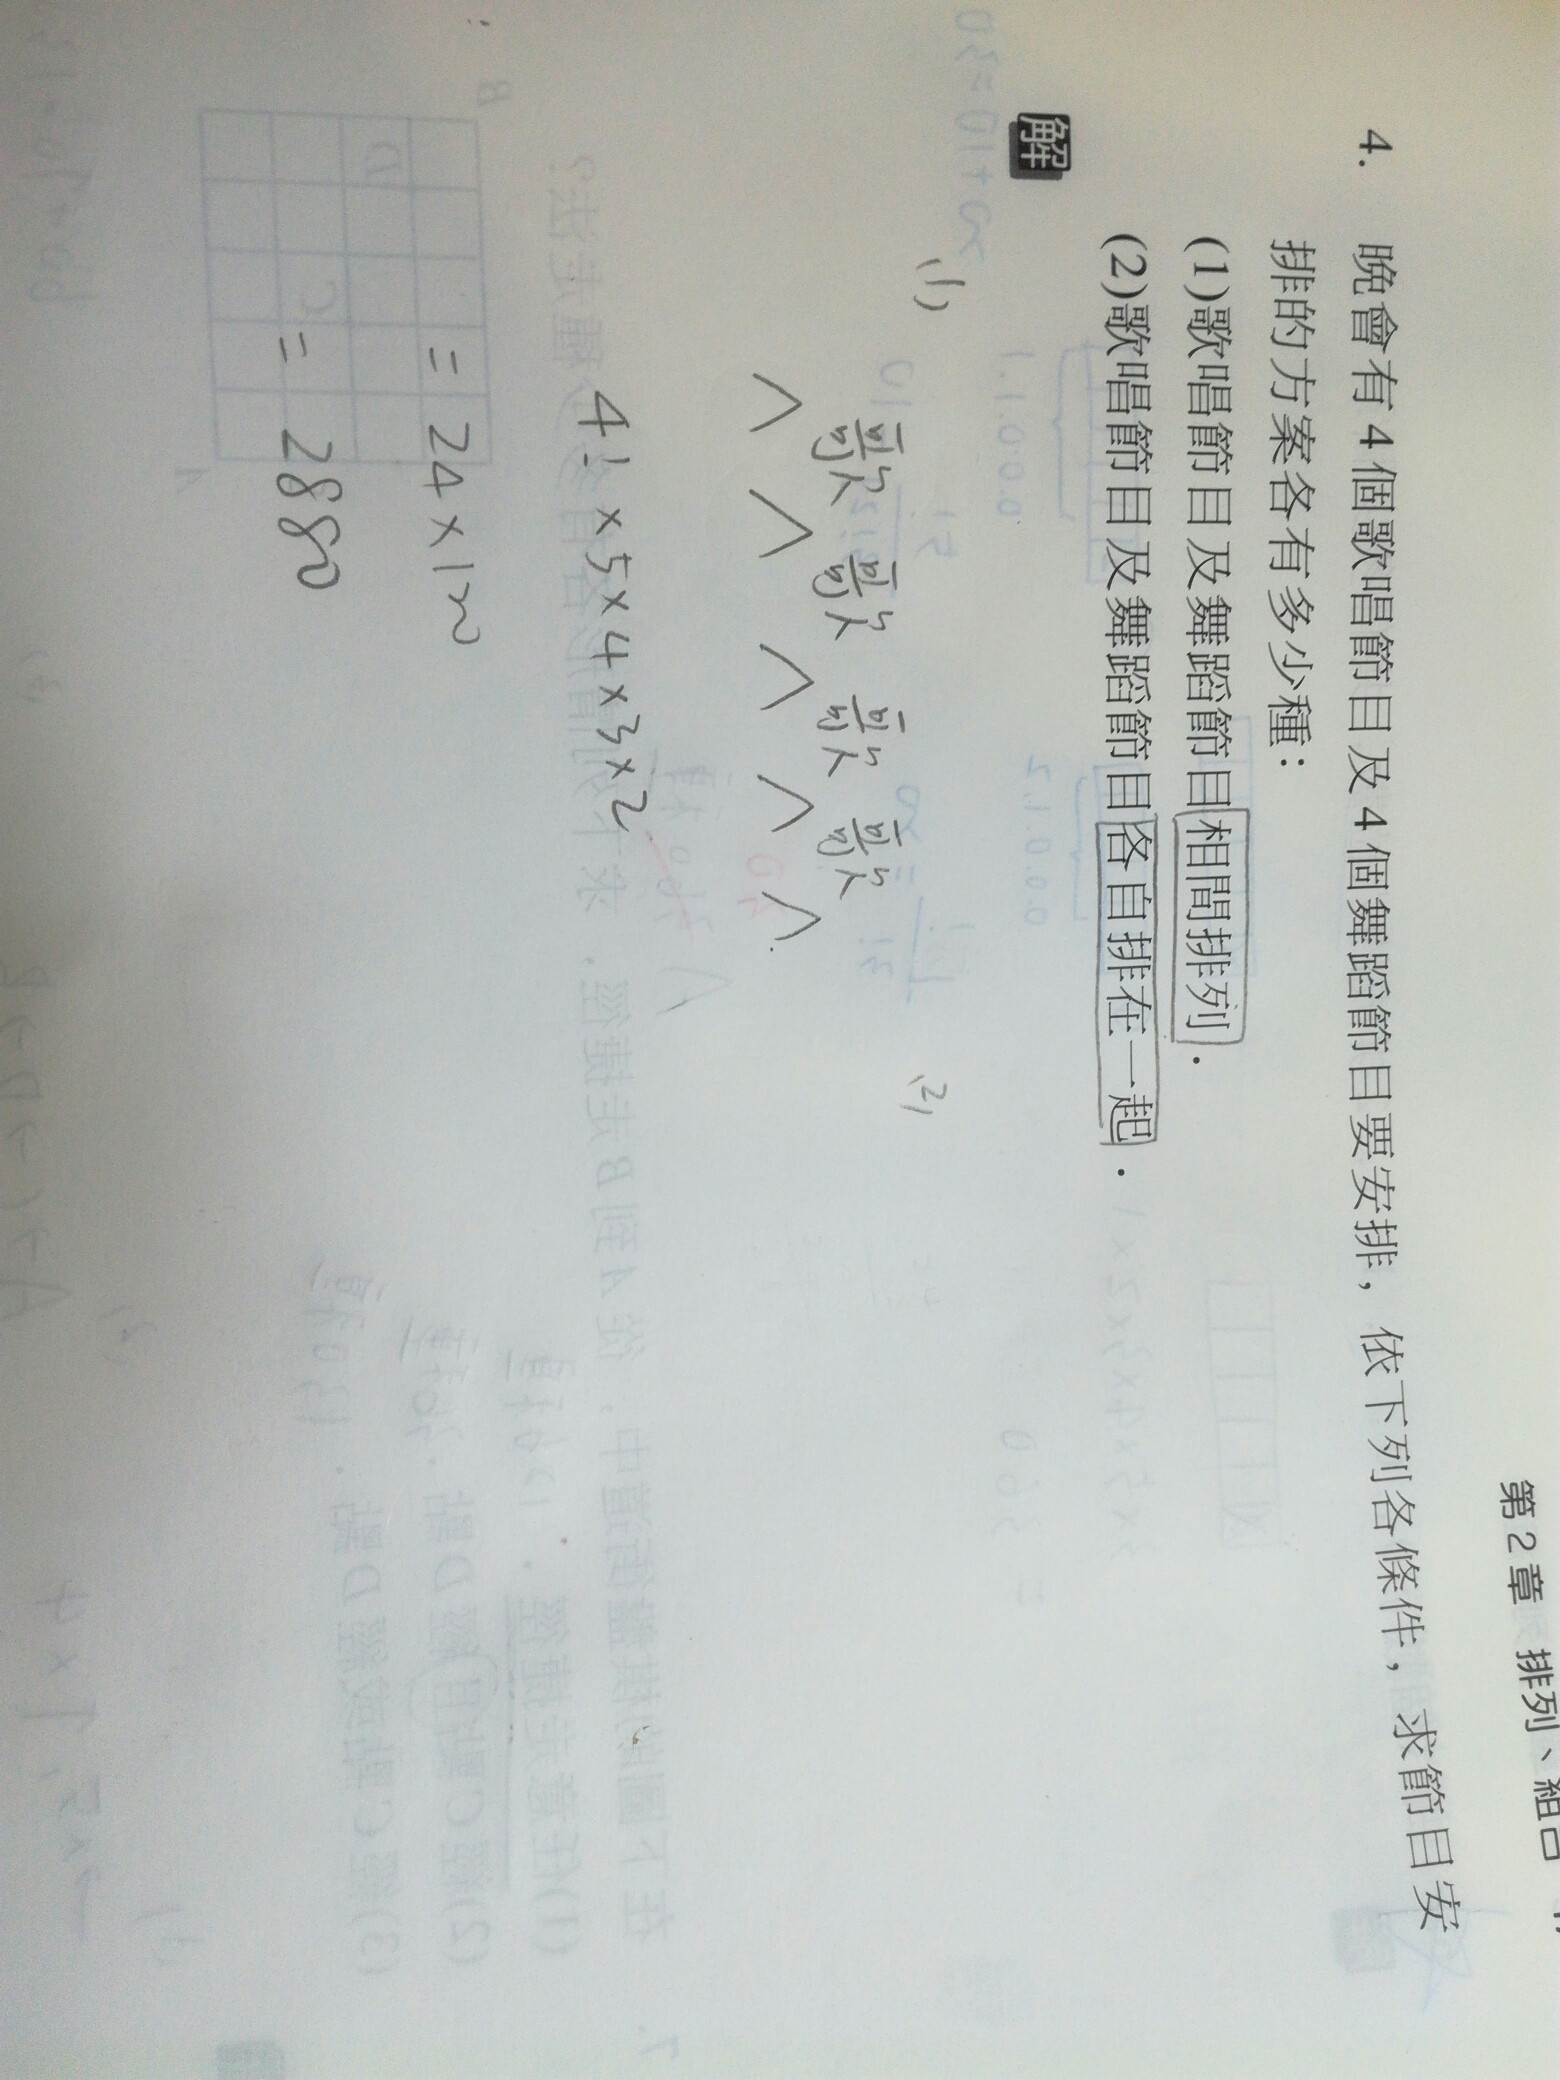 第2章 排列、組合
4. 晚會有4個歌唱節目及4個舞蹈節目要安排，依下列各條件，求節目安
排的方案各有多少種：
(1)歌唱節目及舞蹈節目相間排列．
(2)歌唱節目及舞蹈節目各自排在一起．
解
(1)
(2)
歌 歌 歌 歌
∧ ∧ ∧ ∧ ∧
4! × 5 × 4 × 3 × 2
= 24 × 120
= 2880